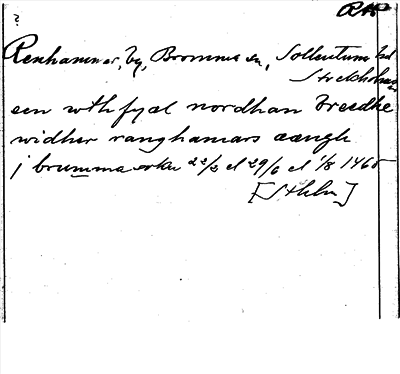 ?
RAP
Renhammar, by, Bromma sn, Sollentuna hd
Stockholms
een wthfyæl nordhan breedhe
widher ranghamars ængh
j brumma sokn 22/2 el 29/6 el 1/8 1465
[Sthlm]